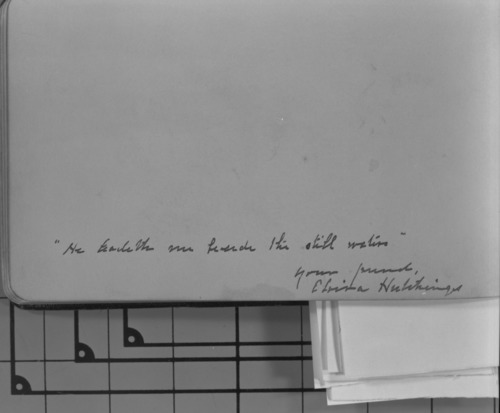 "He leadeth me beside the still waters"
Your friend,
Elvira Hutchings